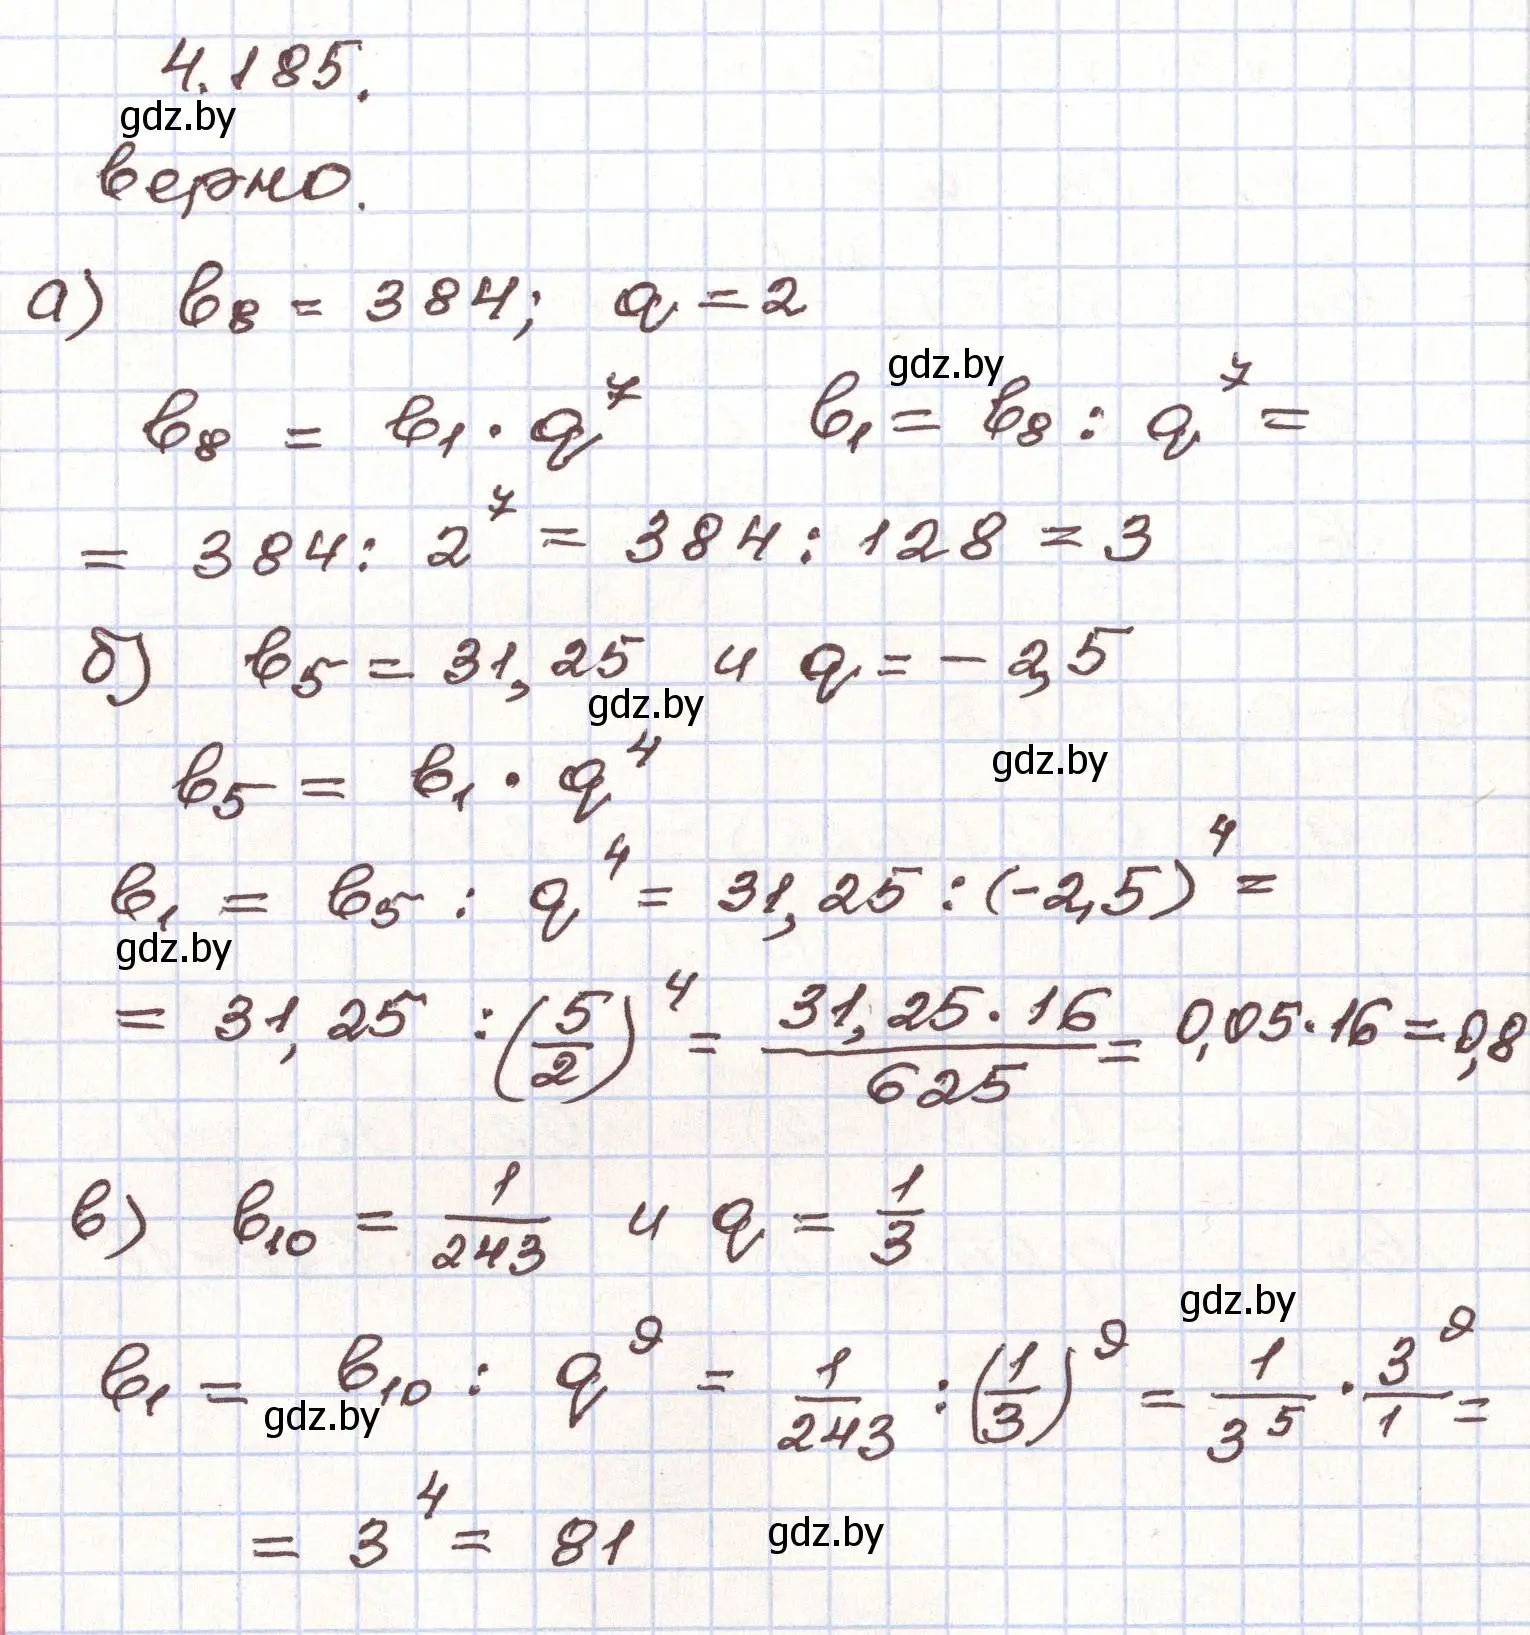 4.185.
gdz.by
верно.
а) в₈ = 384; q = 2
gdz.by
в₈ = в₁ · q⁷ в₁ = в₈ : q⁷ =
= 384 : 2⁷ = 384 : 128 = 3
б) в₅ = 31,25 и q = -2,5
gdz.by
gdz.by
в₅ = в₁ · q⁴
в₁ = в₅ : q⁴ = 31,25 : (-2,5)⁴ =
gdz.by
= 31,25 : (5/2)⁴ = 31,25 · 16 / 625 = 0,05 · 16 = 0,8
в) в₁₀ = 1/243 и q = 1/3
gdz.by
в₁ = в₁₀ : q⁹ = 1/243 : (1/3)⁹ = 1/3⁵ · 3⁹/1 =
gdz.by
= 3⁴ = 81
gdz.by